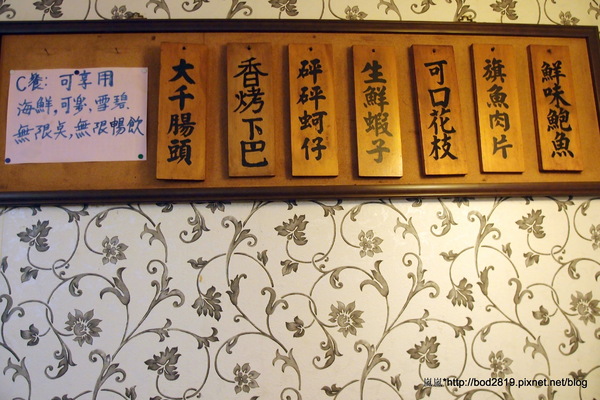 C餐:可享用
海鮮,可樂,雪碧
無限吳,無限暢飲
大千腸頭
香烤下巴
砰砰蚵仔
生鮮蝦子
可口花枝
旗魚肉片
鮮味鮑魚
嵐嵐*http://bod2819.pixnet.net/blog